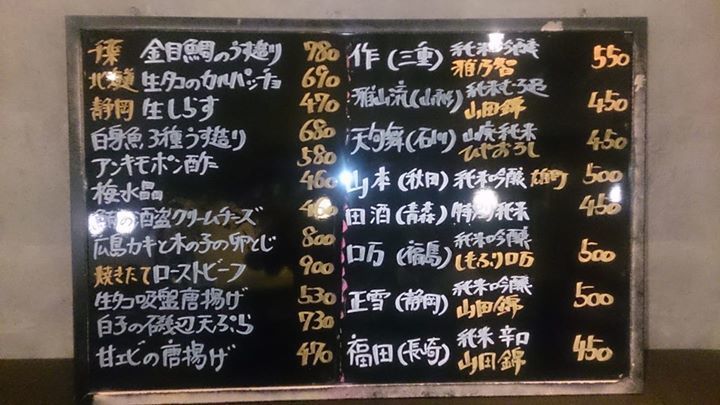 千葉 金目鯛のうす造り 780
北海道 生タコのカルパッチョ 690
静岡 生しらす 470
白身魚3種うす造り 680
アンキモポン酢 580
梅水晶 460
鯛の酒盗クリームチーズ 460
広島カキと木の子の卵とじ 800
焼きたてローストビーフ 900
生タコ吸盤唐揚げ 530
白子の磯辺天ぷら 730
甘エビの唐揚げ 470
作(三重) 純米吟醸 雅乃智 550
雅山流(山形) 純米むろ過 山田錦 450
天狗舞(石川) 山廃純米 ひやおろし 450
山本(秋田) 純米吟醸 雄町 500
田酒(青森) 特別純米 450
口万(福島) 純米吟醸 しもふり口万 500
正雪(静岡) 純米吟醸 山田錦 500
福田(長崎) 純米 辛口 山田錦 450